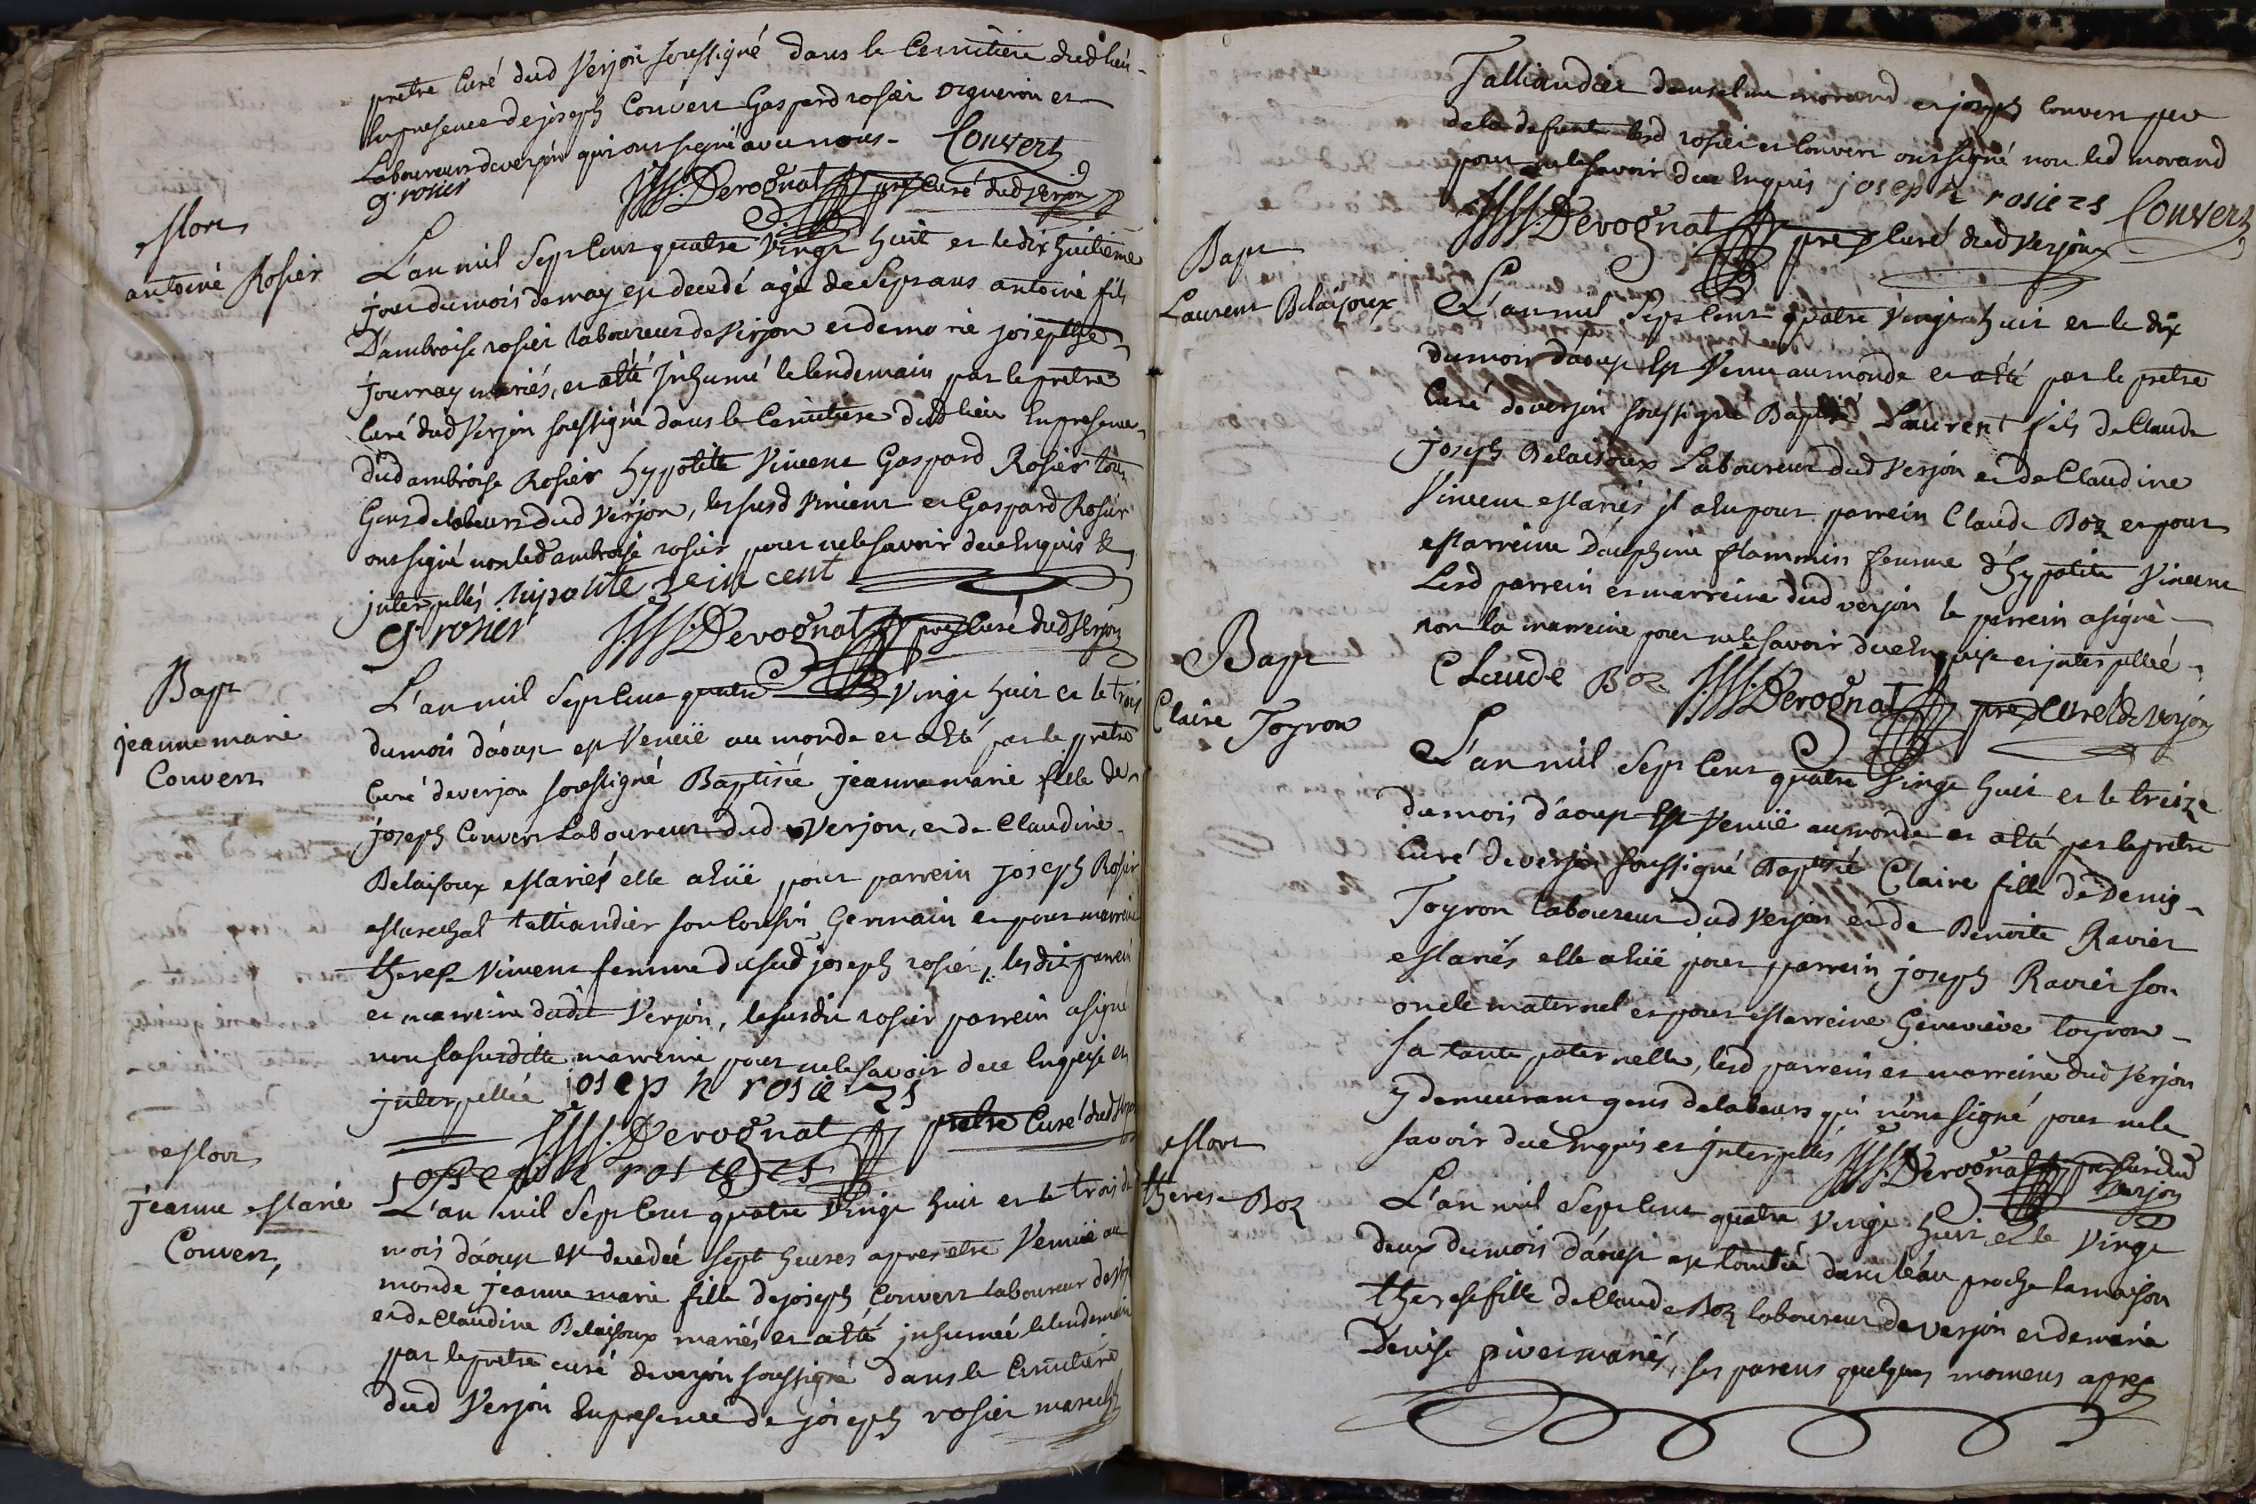 prêtre Curé dud Verjon soussigné dans le Cemitiere dud lieu
En presence de joseph Convert Gaspard rosier vigneron et
Laboureurs de verjon qui ont signé avec nous - Convert
g. rosier Devognat pre Curé dud verjon
Mort
antoine Rosier
L'an mil Sept Cent quatre Vingt huit et le dix huitieme
jour du mois de may est decedé agé de Sept ans antoine fils
D'ambroise rosier laboureur de Verjon et de marie josephte
journay mariés, et a été Inhumé le lendemain par le prêtre
Curé dud Verjon soussigné dans le Cemitiere dud lieu En presence
dud ambroise Rosier hypolite Vincent Gaspard Rosier tous
Gens de labeurs dud Verjon, les susd Vincent et Gaspard Rosier
ont signé non led ambroise rosier pour ne le savoir de ce Enquis &
interpellés hipolite veincent
g. rosier Devognat pre Curé dud Verjon
Bapt
jeanne marie
Convert
L'an mil Sept Cent quatre Vingt huit et le trois
du mois d'aoust est Venuë au monde et a été par le prêtre
Curé de verjon soussigné Baptisée jeanne marie fille de
joseph Convert Laboureur dud Verjon, et de Claudine
Belaisoux Mariés elle a Euë pour parrein joseph Rosier
Marechal talliandier son Cousin Germain et pour marreine
therese Vincent femme du susd joseph rosier, les dit parrein
et marreine dudit Verjon, le susdit rosier parrein a signé
non la susditte marreine pour ne le savoir de ce Enquise et
interpellée joseph rosiers
Devognat prêtre Curé dud Verjon
joseph rosiers
Mort
jeanne Marie
Convert
L'an mil Sept Cent quatre Vingt huit et le trois du
mois d'aoust est decedeé Sept heures apres etre Venuë au
monde jeanne marie fille de joseph Convert laboureur de Verjon
et de Claudine Belaisoux mariés et a été inhumeé le lendemain
par le prêtre curé de verjon soussigné dans le Cemitiere
dud Verjon En presence de joseph rosier marechal
Talliandier d'anselme morand et joseph Convert pere
de la defunte lesd rosier et Convert ont signé non led morand
pour ne le savoir de ce Enquis joseph rosiers Convert
Devognat pre Curé dud Verjon
Bapt
Laurent Belaisoux
L'an mil Sept Cent quatre Vingt huit et le dix
du mois d'aoust Est Venu au monde et a été par le prêtre
Curé de verjon soussigné Baptisé Laurent fils de Claude
joseph Belaisoux Laboureur dud Verjon et de Claudine
Vincent Mariés il a Eu pour parrein Claude Boz et pour
Marreine Dauphine flammin femme d'hypolite Vincent
Lesd parrein et marreine dud verjon le parrein a signé
non la marreine pour ne le savoir de ce Enquise et interpellée
Claude Boz Devognat pre Curé de Verjon
Bapt
Claire Toyron
L'an mil Sept Cent quatre Vingt huit et le treize
du mois d'aoust Est Venuë au monde et a été par le prêtre
Curé de verjon soussigné Baptisée Claire fille de Denis
Toyron laboureur dud Verjon et de Benoite Ravier
Mariés elle a Euë pour parrein joseph Ravier son
oncle maternel et pour Marreine Genevieve toyron
sa tante paternelle, lesd parrein et marreine dud Verjon
y demeurant gens de labeurs qui n'ont signé pour ne le
savoir de ce Enquis et interpellés Devognat pre Curé dud
Verjon
Mort
therese Boz
L'an mil Sept Cent quatre Vingt huit et le Vingt
deux du mois d'aoust est tombée dans l'eau proche la maison
therese fille de Claude Boz laboureur de verjon et de marie
Denise pivet mariés, ses parens quelques momens apres